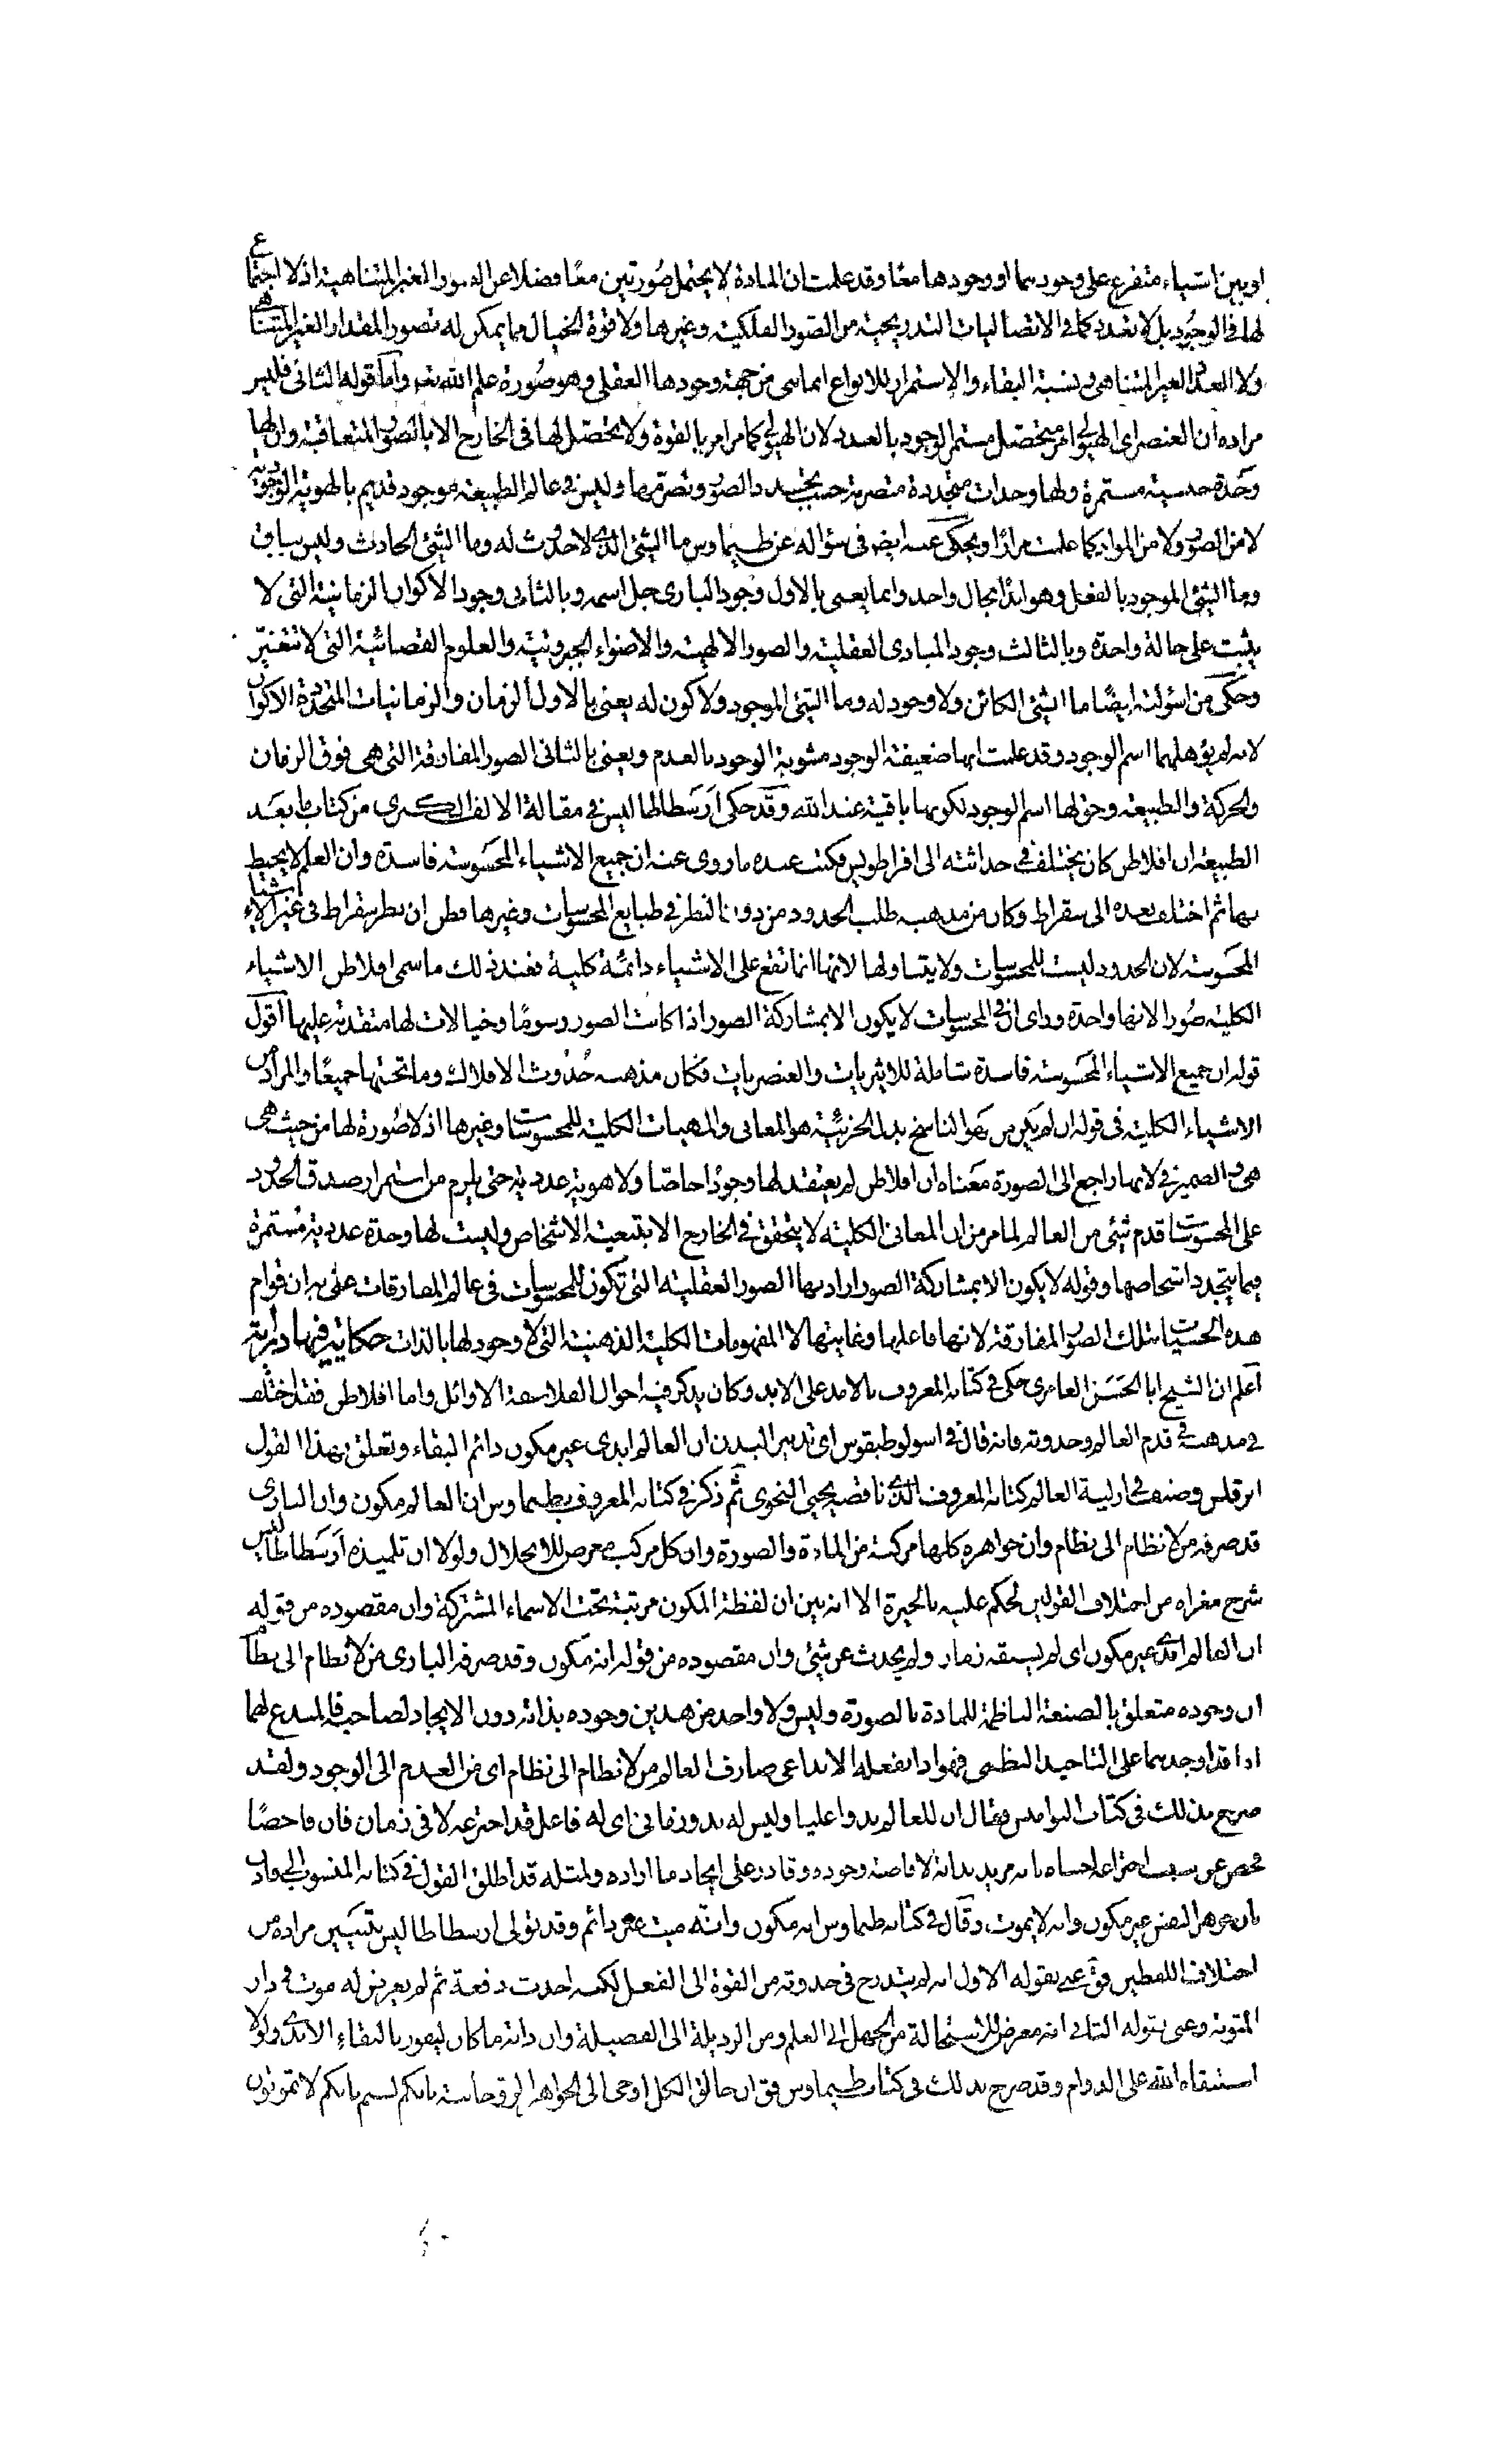 او بين اشياء متفرع على وجودهما او وجودها معا وقد علمت ان المادة لا يحتمل صورتين معا فضلا عن الصور الغير المتناهية اذ لا اجتماع
لها فى الوجود بل لا تعدد كما فى الاتصاليات التدريجية من الصور الفلكية وغيرها ولا قوة الخيال مما يمكن له تصور المقدار الغير المتناهى
ولا العدد الغير المتناهى ونسبة البقاء والاستمرار للانواع انما هى من جهة وجودها العقلى وهو صورة علم الله تعـ واما قوله الثانى فليس
مراده ان العنصر اى الهيولى امر متحصل مستمر الوجود بالعدد لان الهيولى كما مر امر بالقوة ولا تحصل لها فى الخارج الا بالصور المتعاقبة وان لها
وحدة جنسية مستمرة ولها وحدات متجددة متصرمة حسب تجدد الصور وتصرمها وليس فى عالم الطبيعة موجود قديم بالهوية الوجودية
لا من الصور ولا من المواد كما علمت مرارا ويحكى عنه ايضـ فى سؤاله عن طيماوس ما الشئ الذى لا حدوث له وما الشئ الحادث وليس بباق
وما الشئ الموجود بالفعل وهو ابدا بحال واحد وانما يعنى بالاول وجود البارى جل اسمه وبالثانى وجود الاكوان الزمانية التى لا
يثبت على حالة واحدة وبالثالث وجود المبادى العقلية والصور الالهية والاضواء الجبروتية والعلوم القضائية التى لا تتغير
وحكى من اسولته ايضا ما الشئ الكائن ولا وجود له وما الشئ الموجود ولا كون له يعنى بالاول الزمان والزمانيات المتجددة الاكوان
لانه لم يؤهلهما اسم الوجود وقد علمت انها ضعيفة الوجود مشوبة الوجود بالعدم ويعنى بالثانى الصور المفارقة التى هى فوق الزمان
والحركة والطبيعة وحق لها اسم الوجود لكونها باقية عند الله وقد حكى ارسطاطاليس فى مقالة الالف الكبرى من كتاب ما بعد
الطبيعة ان افلاطن كان يختلف فى حداثته الى اقراطولس فكتب عنه ما روى عنه ان جميع الاشياء المحسوسة فاسدة وان العلم لا يحيط
بها ثم اختلف بعده الى سقراط وكان من مذهبه طلب الحدود من دون النظر فى طبايع المحسوسات وغيرها فظن ان نظر سقراط فى غير الاشياء
المحسوسة لان الحدود ليست للمحسوسات ولا يتناولها لانها انما تقع على الاشياء دائمة كلية فعند ذلك ما سمى افلاطن الاشياء
الكلية صورا لانها واحدة وراى ان فى المحسوسات لا يكون الا بمشاركة الصور اذا كانت الصور رسوما وخيالات لها متقدمة عليها اقول
قوله ان جميع الاشياء المحسوسة فاسدة شاملة للاثيريات والعنصريات فكان مذهبه حدوث الافلاك وما تحتها جميعا والمراد من
الاشياء الكلية فى قوله هو المعانى والمهيات الكلية للمحسوسات وغيرها اذ لا صورة لها من حيث هى
هى والضمير فى لانها راجع الى الصورة معناه ان افلاطن لم يعتقد لها وجودا خاصا ولا هوية عددية حتى يلزم من استمرار صدق الحدود
على المحسوسات قدم شئ من العالم لما مر من ان المعانى الكلية لا يتحقق فى الخارج الا بتبعية الاشخاص وليست لها وحدة عددية مستمرة
فيما يتجدد اشخاصها وقوله لا يكون الا بمشاركة الصور اراد بها الصور العقلية التى تكون للمحسوسات فى عالم المفارقات على ان قوام
هذه الحسيات بتلك الصور المفارقة لانها فاعلها وغايتها لا المفهومات الكلية الذهنية التى لا وجود لها بالذات حكاية فيها دراية
اعلم ان الشيخ ابا الحسن العامرى حكى فى كتابه المعروف بالامد على الابد وكان يذكر فيه احوال الفلاسفة الاوائل واما افلاطن فقد اختلف
فى مذهبه فى قدم العالم وحدوثه فانه قال فى اسولوطيقوس اى تدبير البدن ان العالم ابدى غير مكون دائم البقاء وتعلق بهذا القول
ابرقلس وصنف فى ازلية العالم كتابه المعروف الذى ناقضه يحيى النحوى ثم ذكر فى كتابه المعروف بطيماوس ان العالم مكون وان البارى
قد صرفه من لا نظام الى نظام وان جواهره كلها مركبة من المادة والصورة وان كل مركب معرض للانحلال ولولا ان تلميذه ارسطاطاليس
شرح مغزاه من اختلاف القولين لحكم عليه بالحيرة الا انه بين ان لفظة المكون مرتبة تحت الاسماء المشتركة وان مقصوده من قوله
ان العالم ابدى غير مكون اى لم يسبقه زمان ولم يحدث عن شئ وان مقصوده من قوله انه مكون وقد صرفه البارى من لا نظام الى نظام
ان وجوده متعلق بالصنعة الناظمة للمادة بالصورة وليس ولا واحد من هذين وجوده بذاته دون الايجاد لصاحبه فالمبدع لهما
اذا قد اوجدهما على التاحيد النظمى فهو اذا بفعله الابداعى صارف العالم من لا نظام الى نظام اى من العدم الى الوجود ولقد
صرح بذلك فى كتاب النواميس فقال ان للعالم بدوا عليا وليس له بدو زمانى اى له فاعل قد اخترعه لا فى زمان فان فاحصا
فحص عن سبب اختراعه اجبناه بانه مريد بذاته لافاضة وجوده وقادر على ايجاد ما اراده ولمثله قد اطلق القول فى كتابه المنسوب الى فاذن
بان جوهر النفس غير مكون وانه لا يموت وقال فى كتابه طيماوس انه مكون وانه ميت غير دائم وقد تولى ارسطاطاليس تبيين مراده من
اختلاف اللفظين فق عنى بقوله الاول انه لم يتدرج فى حدوثه من القوة الى الفعل لكنه احدث دفعة ثم لم يعرض له موت فى دار
المثوبة وعنى بقوله الثانى انه معرض للاستحالة من الجهل الى العلم ومن الرذيلة الى الفضيلة وان ذاته ما كان ليفوز بالبقاء الابدى ولولا
استبقاه الله على الدوام وقد صرح بذلك فى كتاب طيماوس فق ان خالق الكل اوحى الى الجواهر الروحانية بانكم لستم بانكم لا تموتون